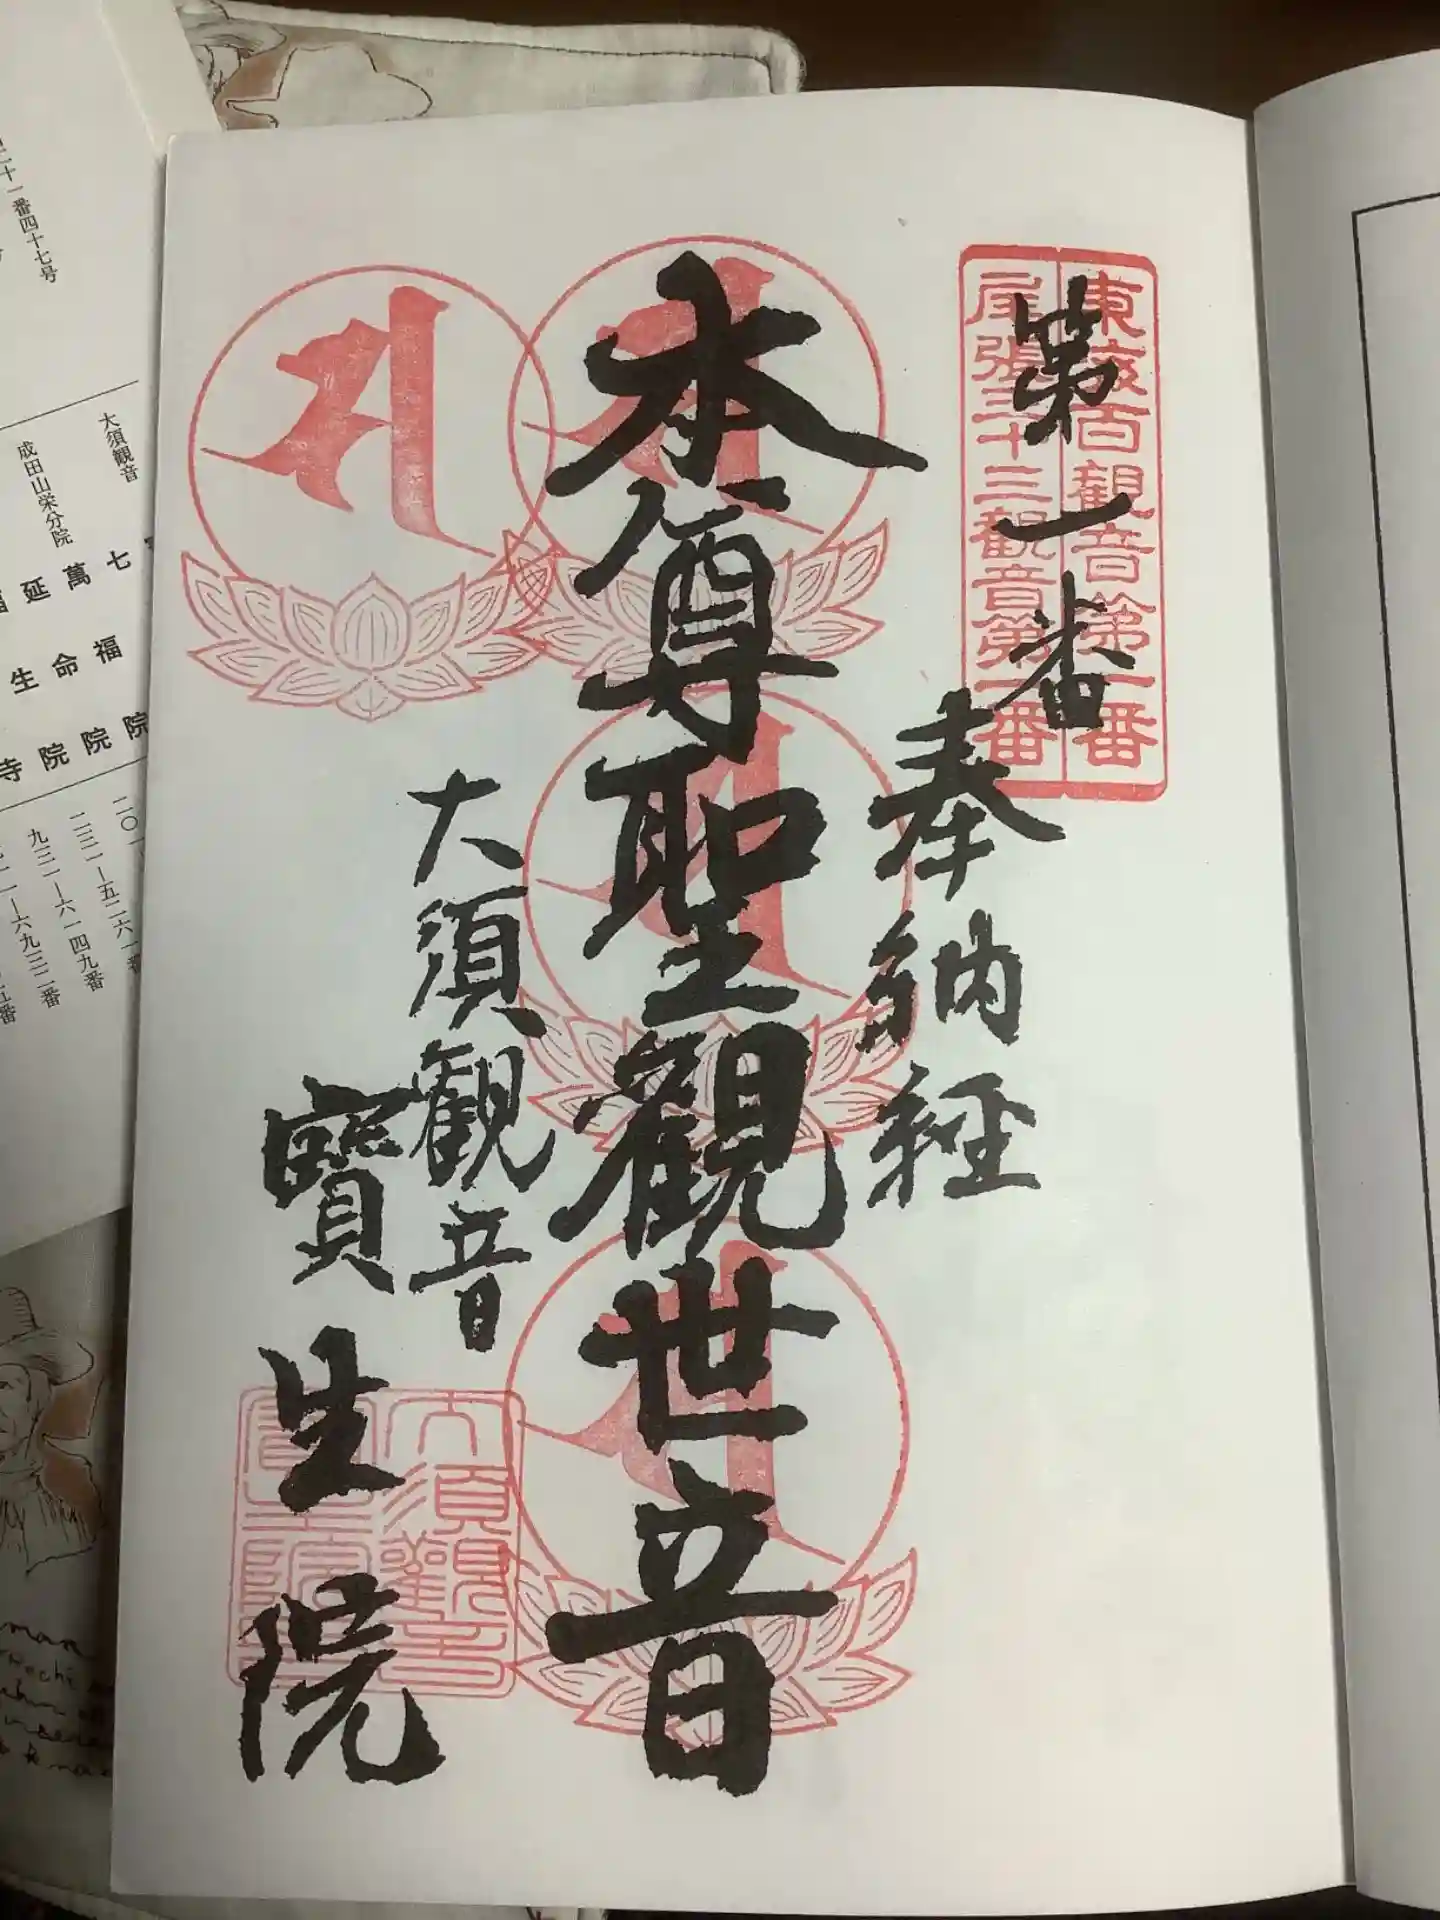 東海百観音第一番
尾張三十三観音第一番
第一番
奉納経
本尊聖観世音
大須観音
寶生院
大須観音
大須観音
成田山栄分院
七
福
院
萬
命
院
延
生
院
寺
二三一ー五二六一番
九三一ー六一四九番
六九三二番
二十一番四十七号